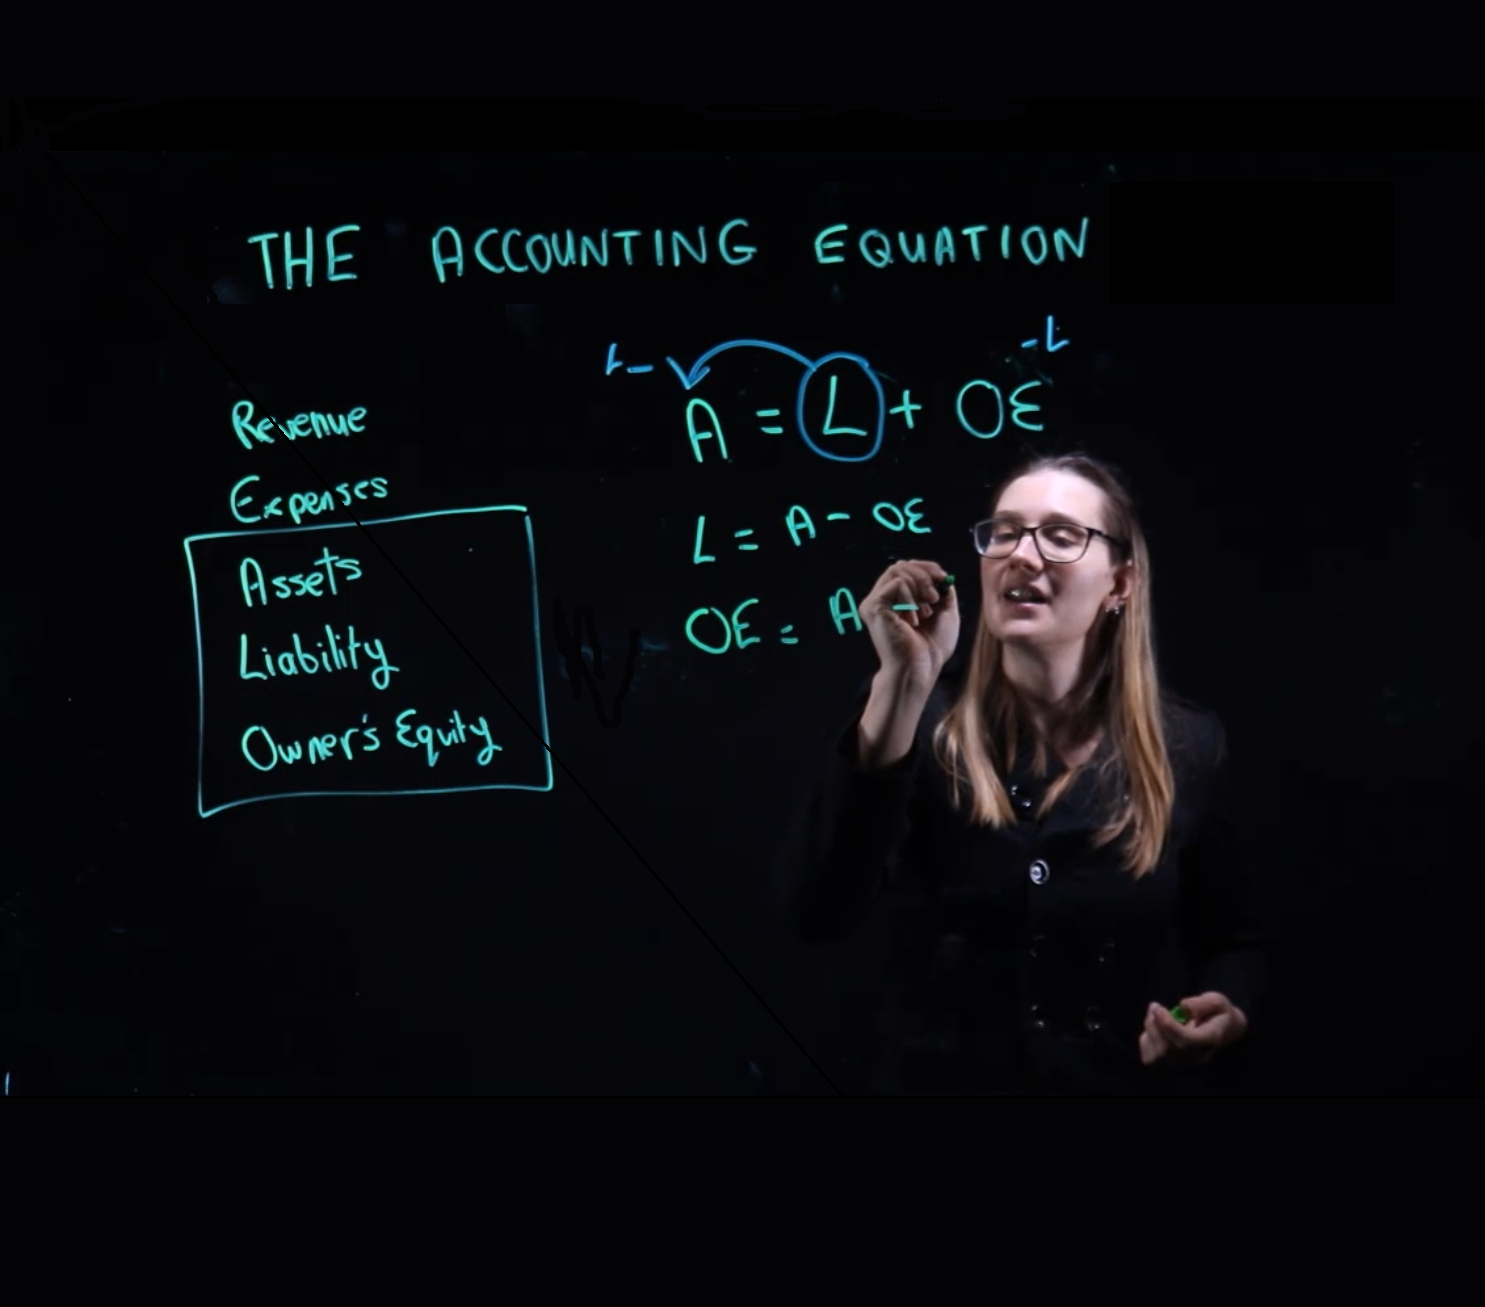 THE ACCOUNTING EQUATION
Revenue
Expenses
Assets
Liability
Owner's Equity
L- -L
A = L + OE
L = A - OE
OE = A -